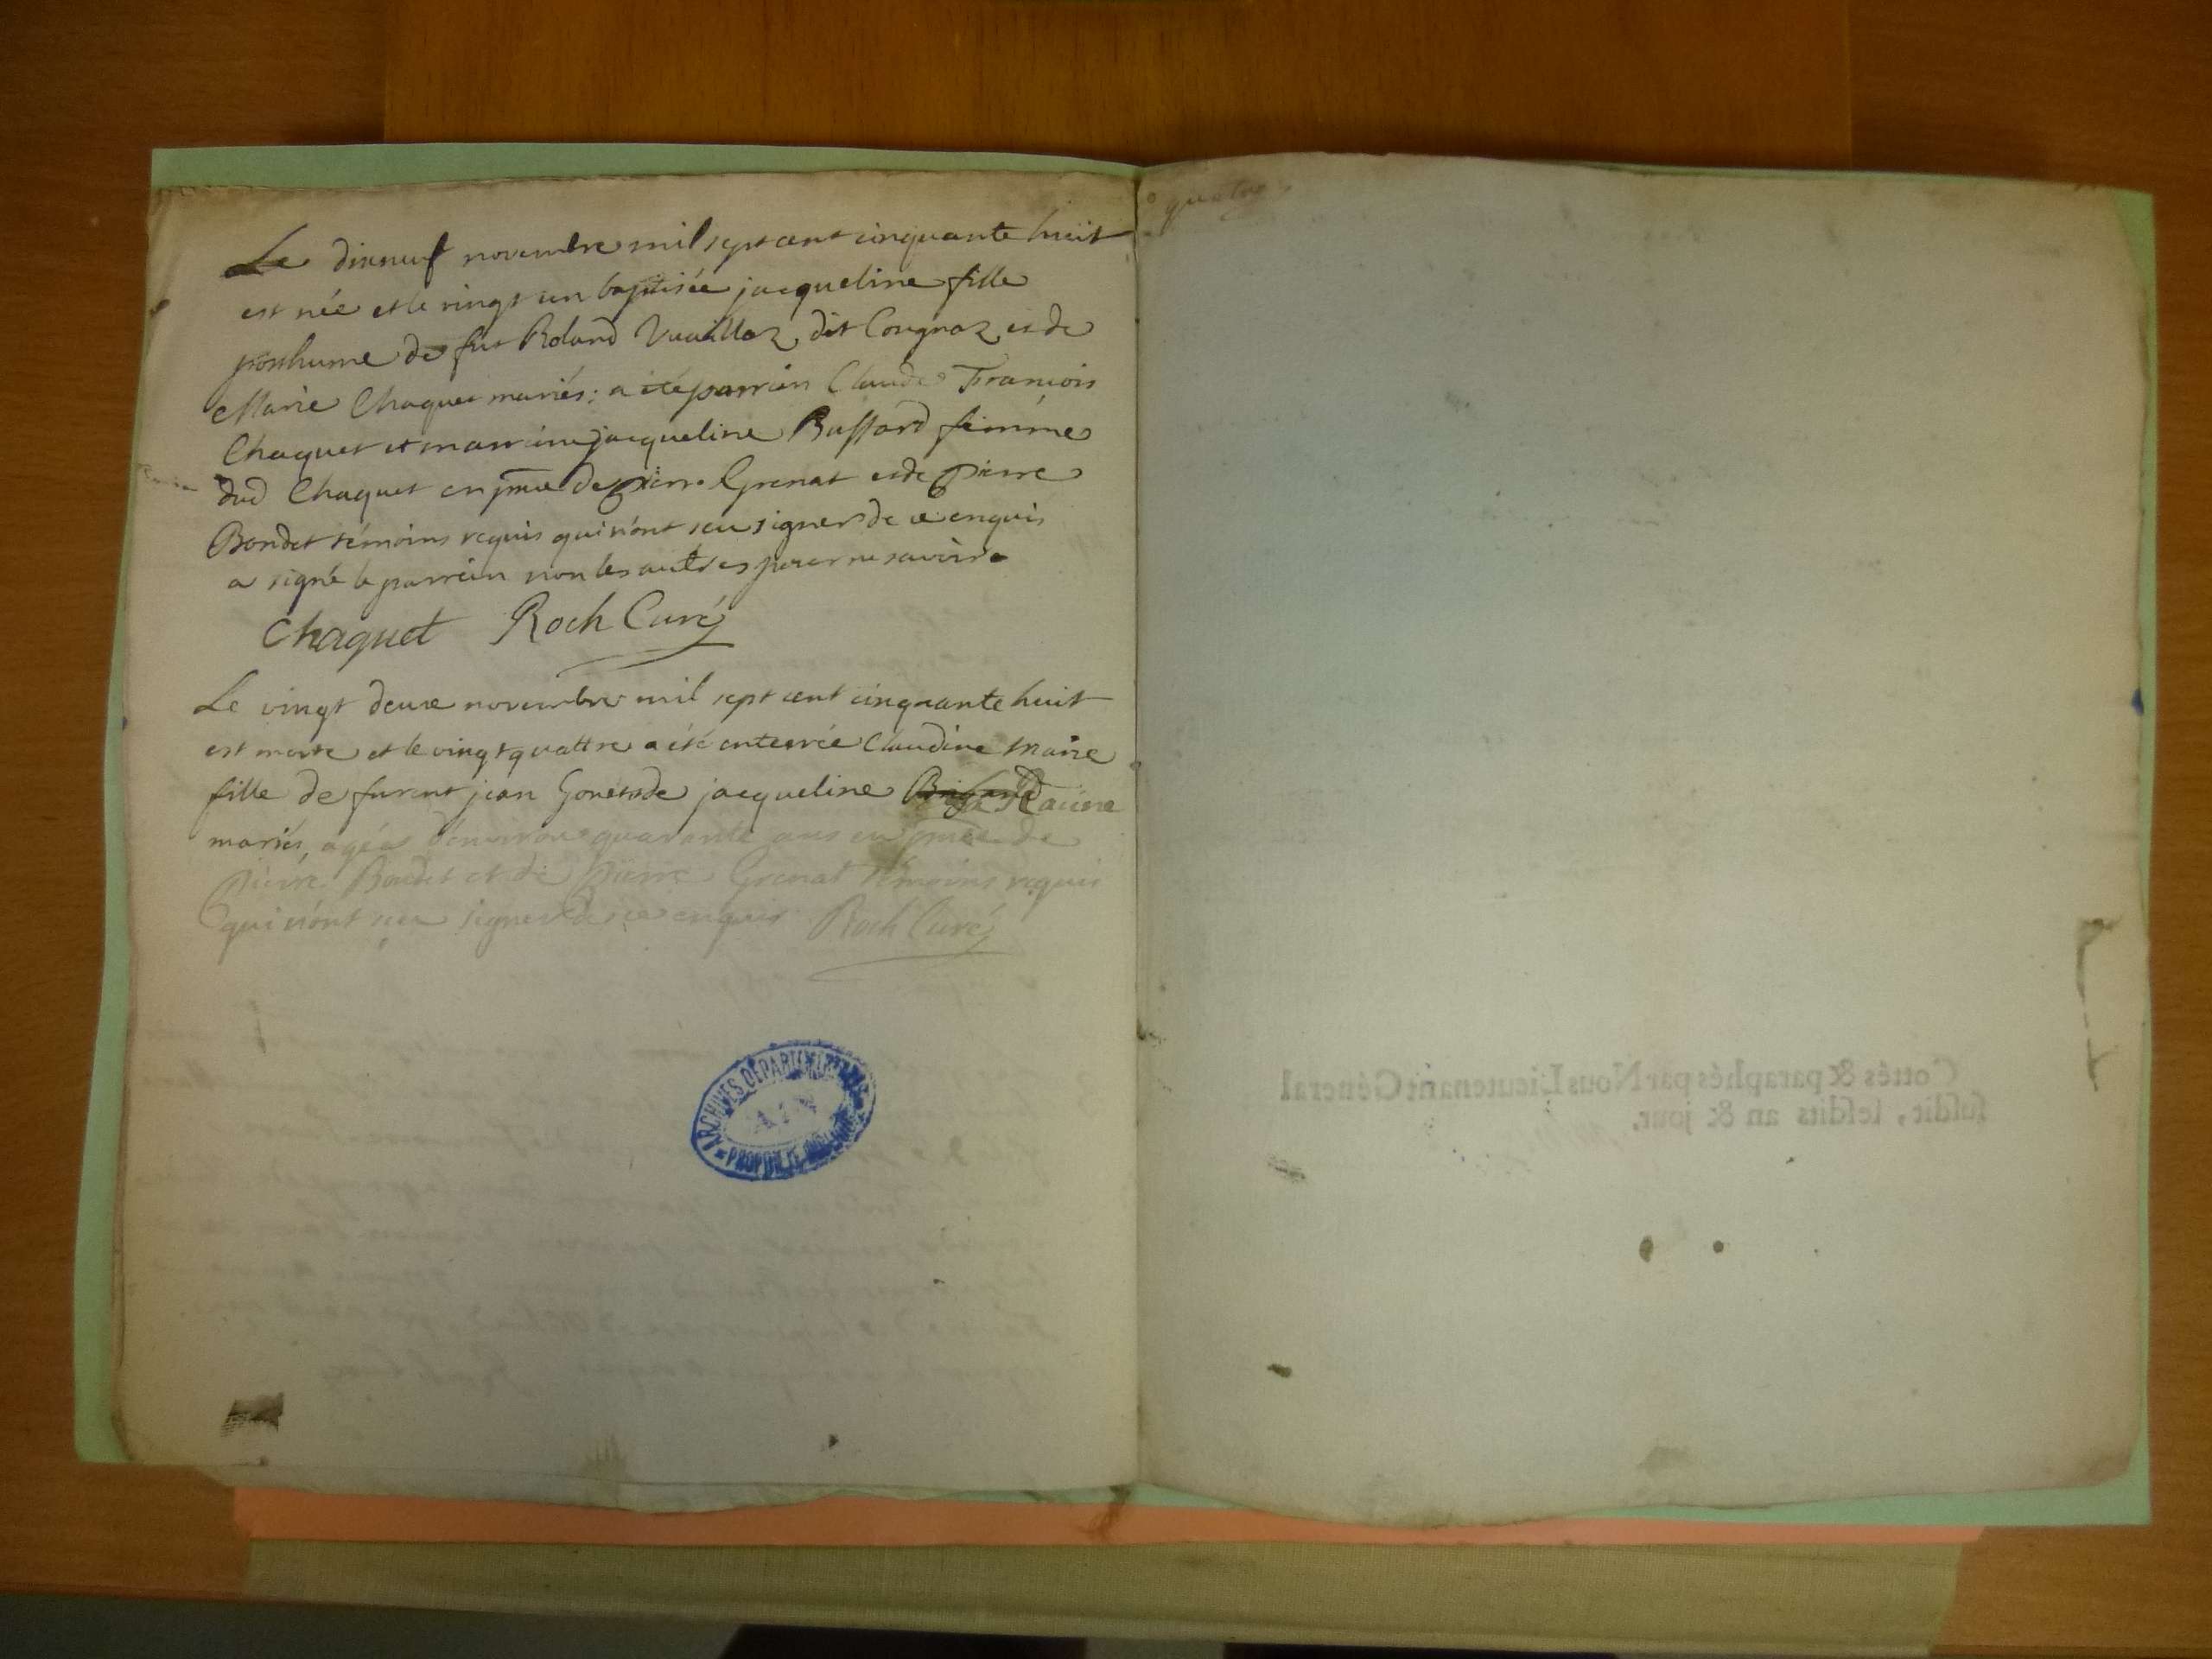 Le dixneuf novembre mil sept cent cinquante huit
est née et le vingt un baptisée jacqueline fille
posthume de fut Roland Vuaillaz dit Cougnaz et de
Marie Chaquet mariés; a été parrain Claude François
Chaquet et marraine jacqueline Buffard femme
dud Chaquet en pnce de pierre Grenat et de Pierre
Bondet témoins requis qui n'ont sçu signer de ce enquis
a signé le parrein non les autres pour ne savoir
Chaquet Roch Curé
Le vingt deux novembre mil sept cent cinquante huit
est morte et le vingt quattre a été enterrée Claudine Marie
fille de furent jean Gonet et de jacqueline Racine
mariés, agée d'environ quarante ans en pnce de
Pierre Bondet et de Pierre Grenat témoins requis
qui n'ont sçu signer de ce enquis Roch Curé
ARCHIVES DÉPARTEMENTALES
AIN
PROPRIÉTÉ PUBLIQUE
Cottés & paraphés par Nous Lieutenant Général
susdit, lesdits an & jour.